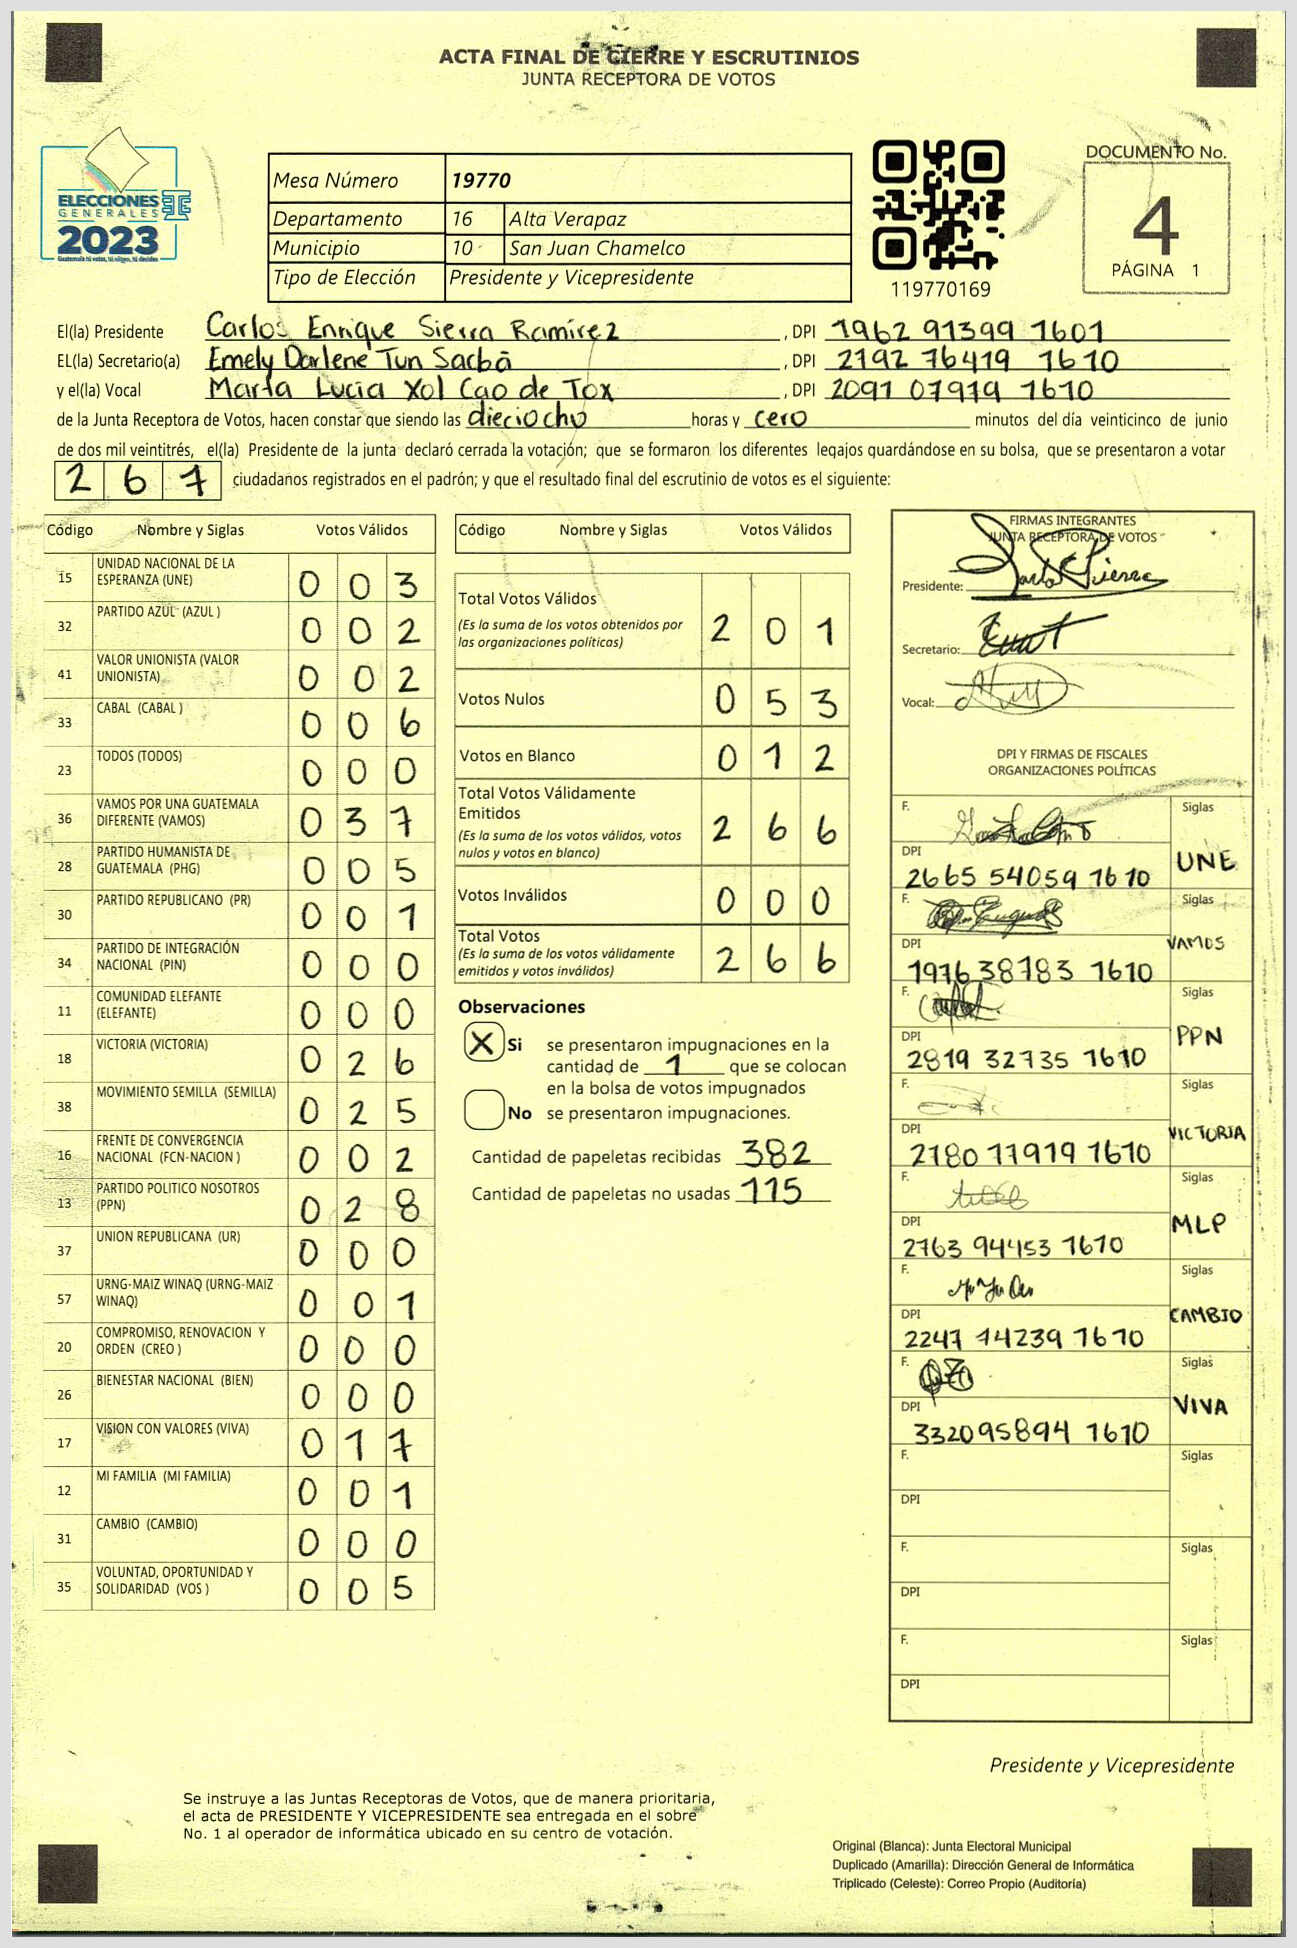 ACTA FINAL DE CIERRE Y ESCRUTINIOS
JUNTA RECEPTORA DE VOTOS
ELECCIONES
GENERALES
2023
Guatemala tú votas, tú eliges, tú decides
Mesa Número 19770
Departamento 16 Alta Verapaz
Municipio 10 San Juan Chamelco
Tipo de Elección Presidente y Vicepresidente
119770169
DOCUMENTO No.
4
PÁGINA 1
El(la) Presidente Carlos Enrique Sierra Ramírez, DPI 1962 91399 1601
EL(la) Secretario(a) Emely Darlene Tun Sacbá, DPI 2192 76419 1610
y el(la) Vocal Marta Lucia Xol Cao de Tox, DPI 2091 07979 1610
de la Junta Receptora de Votos, hacen constar que siendo las dieciocho horas y cero minutos del día veinticinco de junio
de dos mil veintitrés, el(la) Presidente de la junta declaró cerrada la votación; que se formaron los diferentes legajos guardándose en su bolsa, que se presentaron a votar
267 ciudadanos registrados en el padrón; y que el resultado final del escrutinio de votos es el siguiente:
Código Nombre y Siglas Votos Válidos
15 UNIDAD NACIONAL DE LA ESPERANZA (UNE) 003
32 PARTIDO AZUL (AZUL ) 002
41 VALOR UNIONISTA (VALOR UNIONISTA) 002
33 CABAL (CABAL ) 006
23 TODOS (TODOS) 000
36 VAMOS POR UNA GUATEMALA DIFERENTE (VAMOS) 037
28 PARTIDO HUMANISTA DE GUATEMALA (PHG) 005
30 PARTIDO REPUBLICANO (PR) 001
34 PARTIDO DE INTEGRACIÓN NACIONAL (PIN) 000
11 COMUNIDAD ELEFANTE (ELEFANTE) 000
18 VICTORIA (VICTORIA) 026
38 MOVIMIENTO SEMILLA (SEMILLA) 025
16 FRENTE DE CONVERGENCIA NACIONAL (FCN-NACION ) 002
13 PARTIDO POLITICO NOSOTROS (PPN) 028
37 UNION REPUBLICANA (UR) 000
57 URNG-MAIZ WINAQ (URNG-MAIZ WINAQ) 001
20 COMPROMISO, RENOVACION Y ORDEN (CREO ) 000
26 BIENESTAR NACIONAL (BIEN) 000
17 VISION CON VALORES (VIVA) 017
12 MI FAMILIA (MI FAMILIA) 001
31 CAMBIO (CAMBIO) 000
35 VOLUNTAD, OPORTUNIDAD Y SOLIDARIDAD (VOS ) 005
Código Nombre y Siglas Votos Válidos
Total Votos Válidos 201
(Es la suma de los votos obtenidos por
las organizaciones políticas)
Votos Nulos 053
Votos en Blanco 012
Total Votos Válidamente
Emitidos 266
(Es la suma de los votos válidos, votos
nulos y votos en blanco)
Votos Inválidos 000
Total Votos 266
(Es la suma de los votos válidamente
emitidos y votos inválidos)
Observaciones
X Si se presentaron impugnaciones en la
cantidad de 1 que se colocan
en la bolsa de votos impugnados
No se presentaron impugnaciones.
Cantidad de papeletas recibidas 382
Cantidad de papeletas no usadas 115
FIRMAS INTEGRANTES
JUNTA RECEPTORA DE VOTOS
Presidente:
Secretario:
Vocal:
DPI Y FIRMAS DE FISCALES
ORGANIZACIONES POLÍTICAS
F. Siglas
DPI 2665 54059 1610 UNE
F. Siglas
DPI 1976 38783 1610 VAMOS
F. Siglas
DPI 2819 32735 1610 PPN
F. Siglas
DPI 2180 11919 1610 VICTORIA
F. Siglas
DPI 2763 94453 1610 MLP
F. Siglas
DPI 2247 14239 1610 CAMBIO
F. Siglas
DPI 332095894 1610 VIVA
F. Siglas
DPI
F. Siglas
DPI
F. Siglas
DPI
Presidente y Vicepresidente
Se instruye a las Juntas Receptoras de Votos, que de manera prioritaria,
el acta de PRESIDENTE Y VICEPRESIDENTE sea entregada en el sobre
No. 1 al operador de informática ubicado en su centro de votación.
Original (Blanca): Junta Electoral Municipal
Duplicado (Amarilla): Dirección General de Informática
Triplicado (Celeste): Correo Propio (Auditoría)